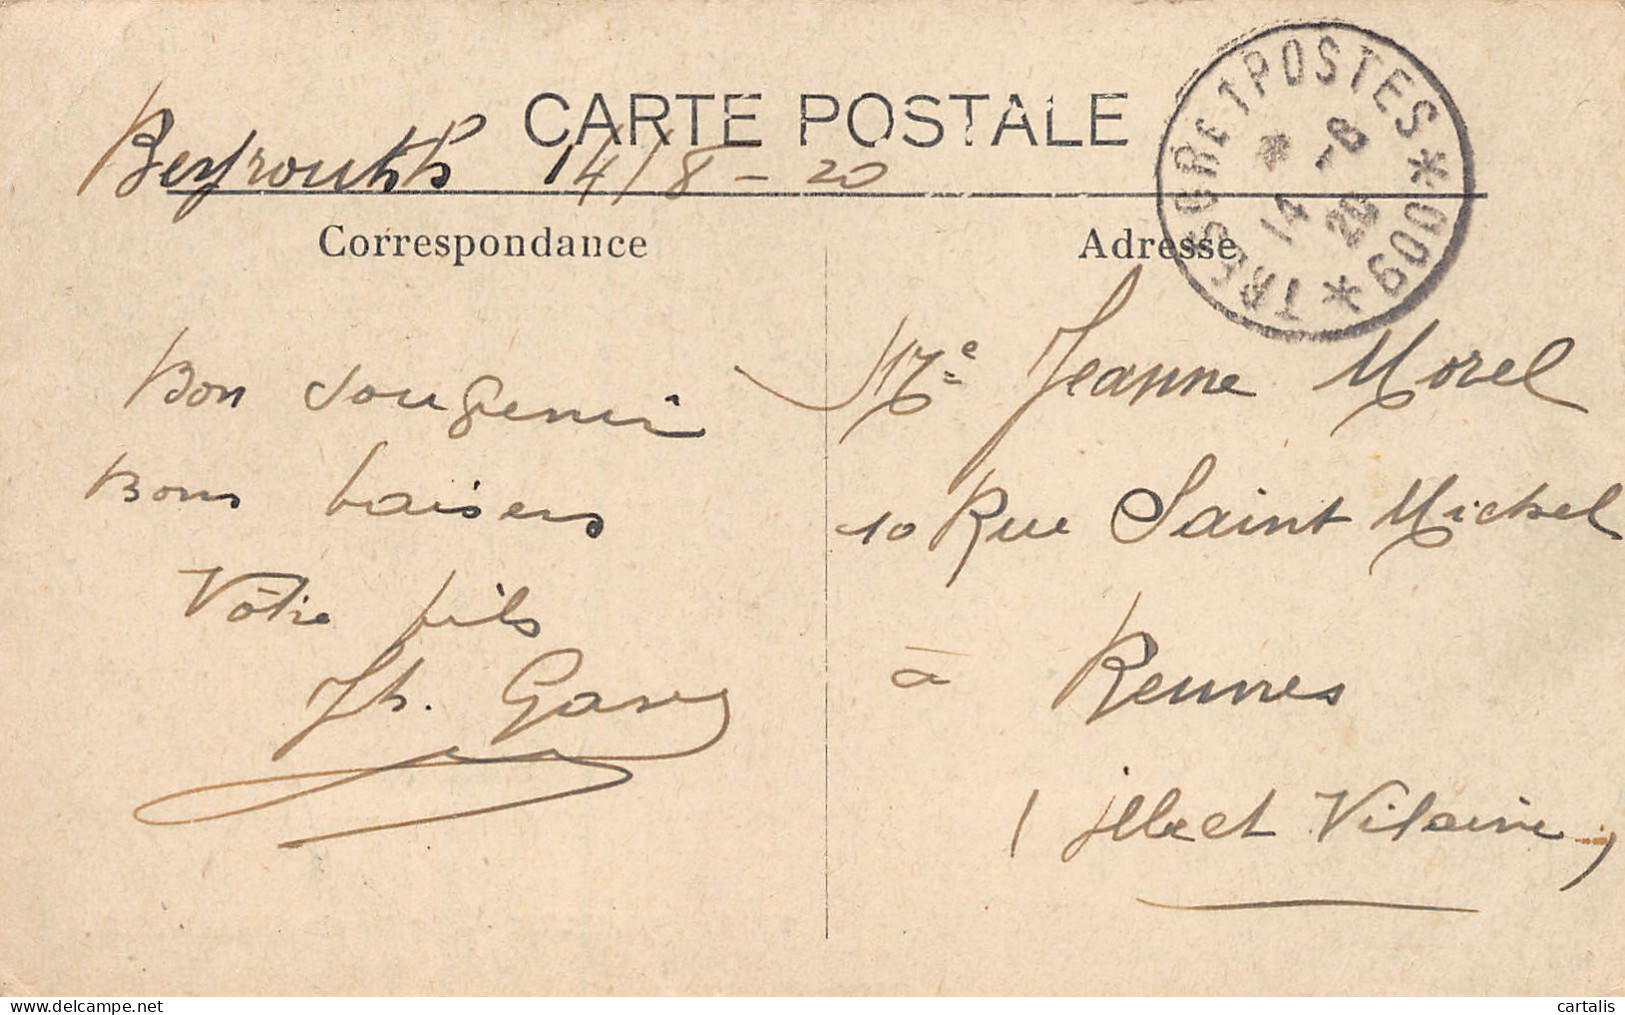 CARTE POSTALE
Beyrouth 14/8-20
TRESOR ET POSTES * 600 *
* 14 -8 20
Correspondance
Adresse
Bon souvenir
Bons baisers
Vôtre fils
Jh. Gary
Mᵉ Jeanne Morel
10 Rue Saint Michel
à Rennes
(ille et Vilaine)
www.delcampe.net
cartalis